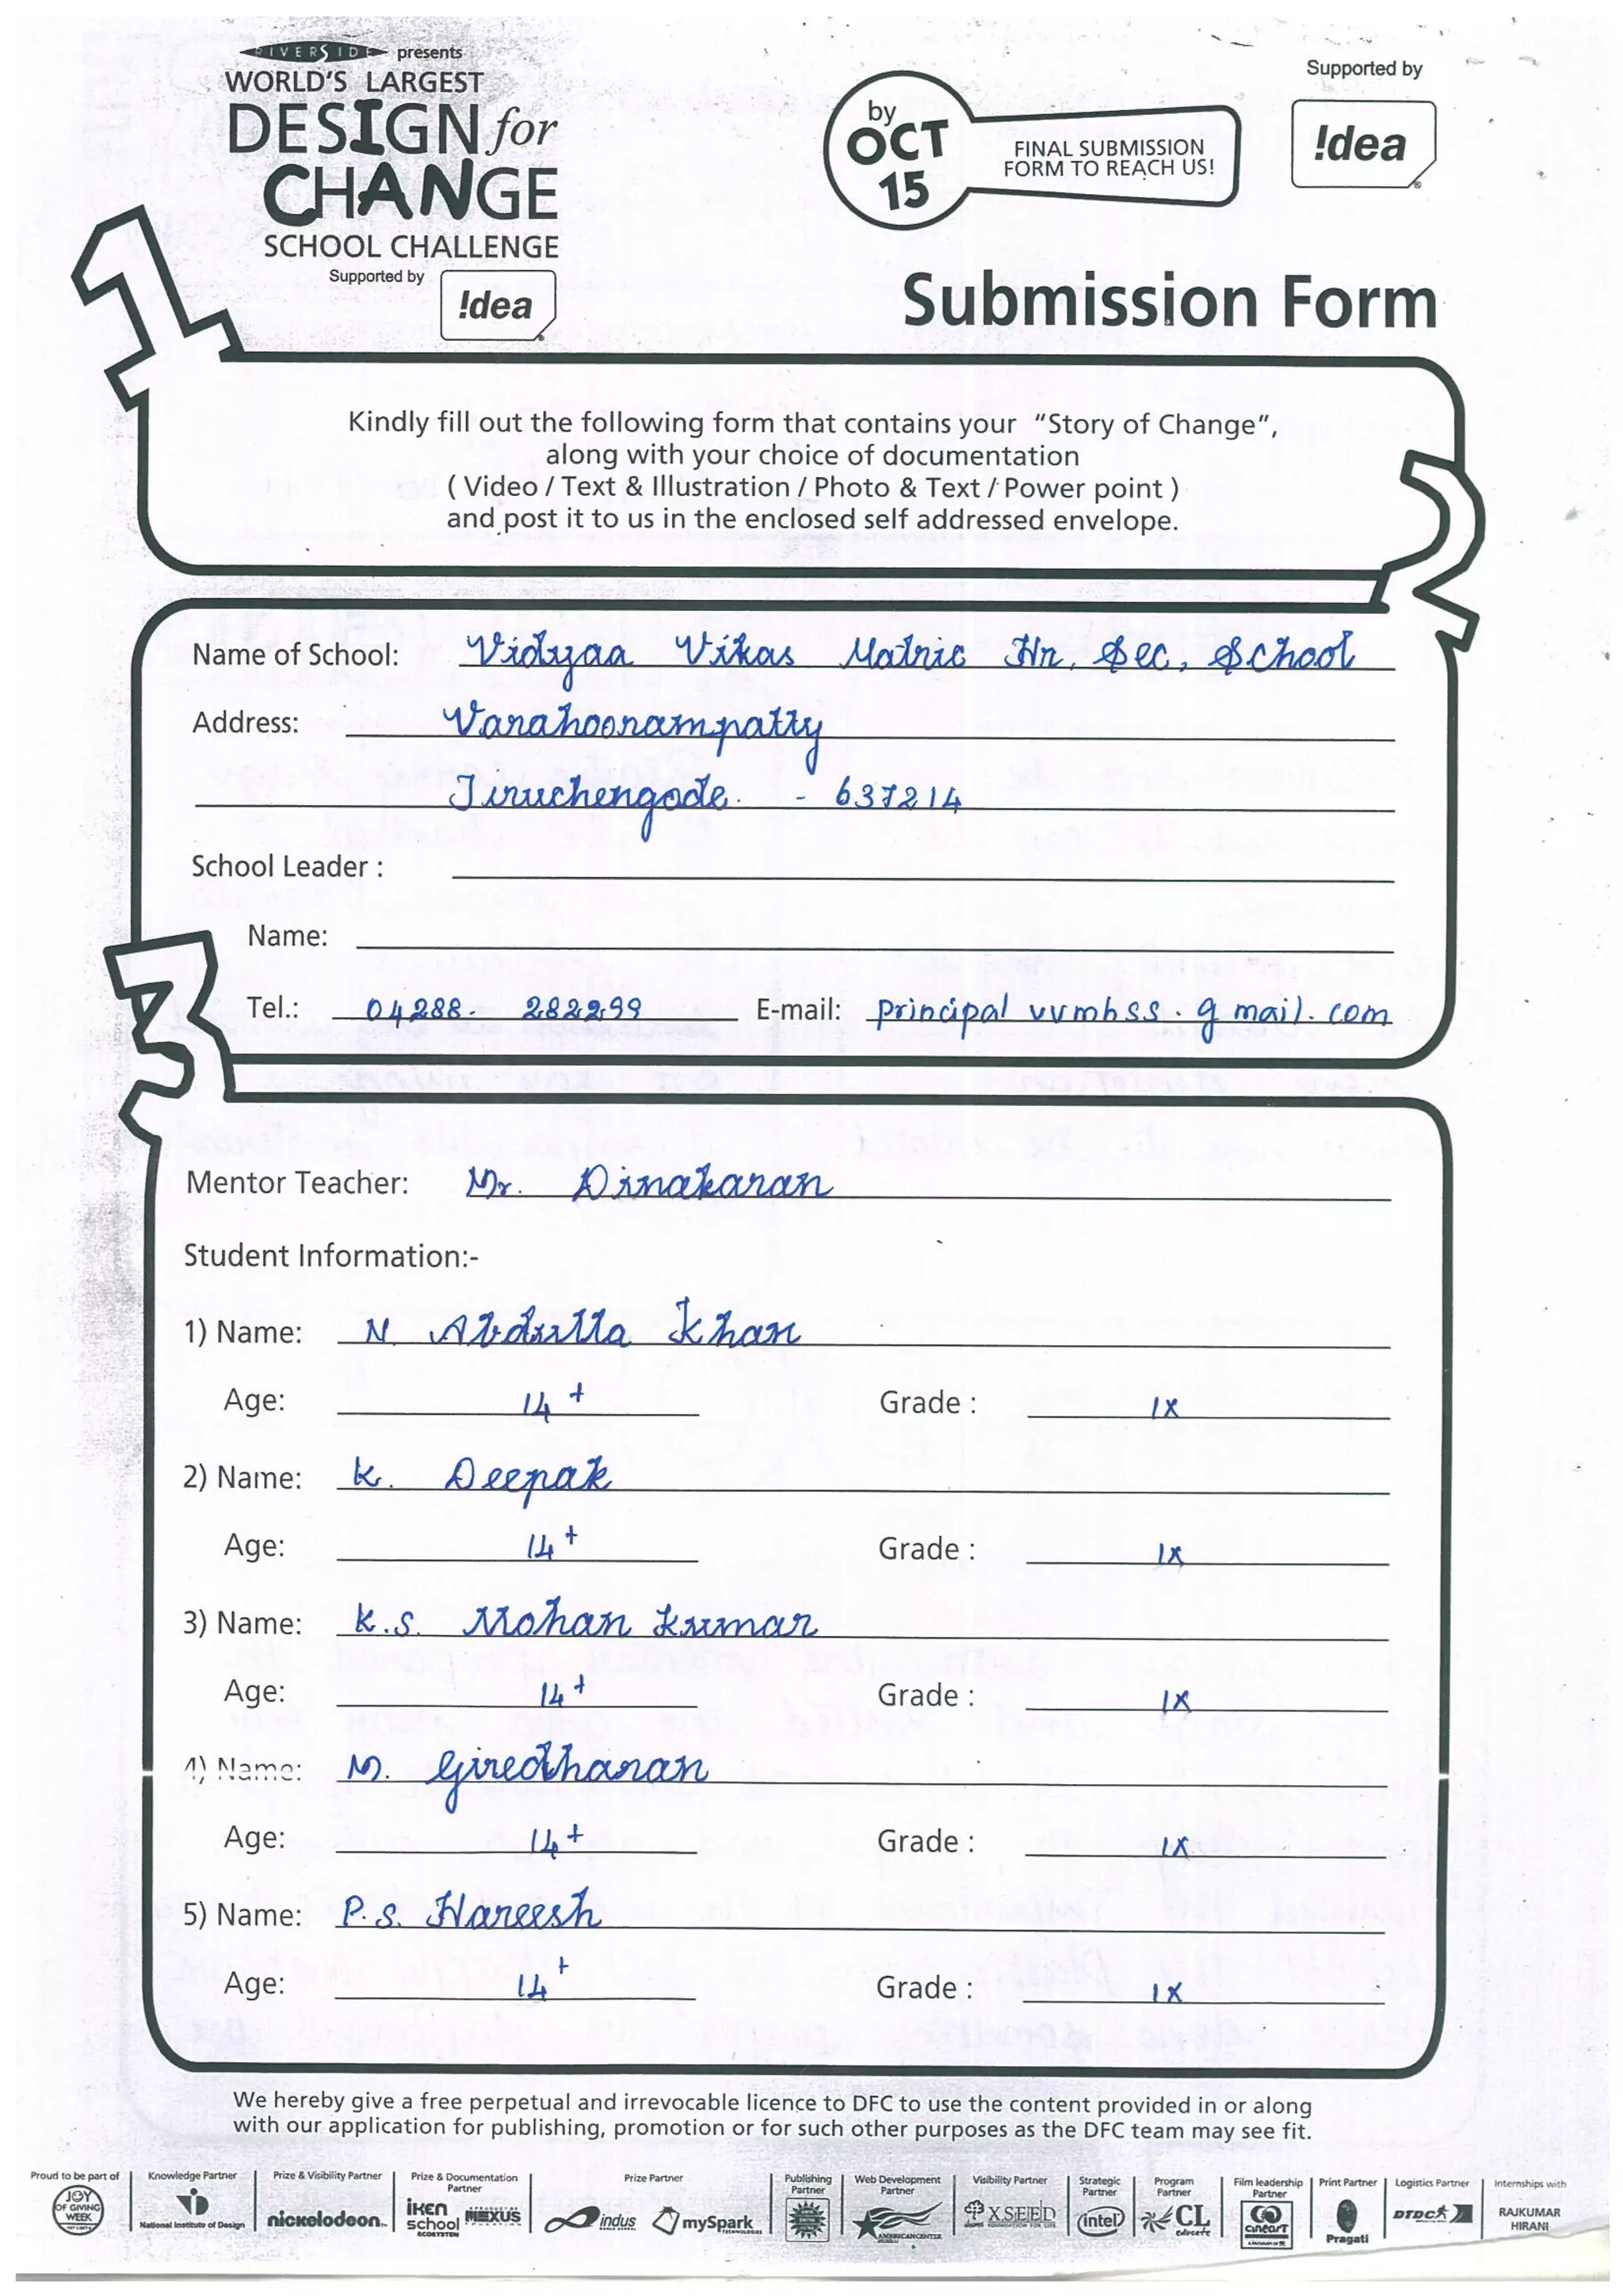 RIVERSIDE presents
WORLD'S LARGEST
DESIGN for
CHANGE
SCHOOL CHALLENGE
Supported by
!dea
by
OCT
15
FINAL SUBMISSION
FORM TO REACH US!
Supported by
!dea
Submission Form
1
Kindly fill out the following form that contains your "Story of Change",
along with your choice of documentation
( Video / Text & Illustration / Photo & Text / Power point )
and post it to us in the enclosed self addressed envelope.
2
Name of School: Vidyaa Vikas Matric Hr. Sec. School
Address: Varahoorampatty
Tiruchengode. - 637214
School Leader :
Name:
Tel.: 04288- 282299 E-mail: principal vvmhss. g mail. com
3
Mentor Teacher: Mr. Dinakaran
Student Information:-
1) Name: N. Abdulla Khan
Age: 14+ Grade : IX
2) Name: K. Deepak
Age: 14+ Grade : IX
3) Name: K.S. Mohan Kumar
Age: 14+ Grade : IX
4) Name: M. Giredharan
Age: 14+ Grade : IX
5) Name: P.S. Hareesh
Age: 14+ Grade : IX
We hereby give a free perpetual and irrevocable licence to DFC to use the content provided in or along
with our application for publishing, promotion or for such other purposes as the DFC team may see fit.
Proud to be part of
JOY
OF GIVING
WEEK
Knowledge Partner
National Institute of Design
Prize & Visibility Partner
nickelodeon
Prize & Documentation
Partner
iKEN
school
ECOSYSTEM
MEXUS
Prize Partner
indus
mySpark
TECHNOLOGIES
Publishing
Partner
Web Development
Partner
AMERICANCENTER
Visibility Partner
XSEED
Strategic
Partner
intel
Program
Partner
CL
educate
Film leadership
Partner
cineart
Print Partner
Pragati
Logistics Partner
DTDC
Internships with
RAJKUMAR
HIRANI